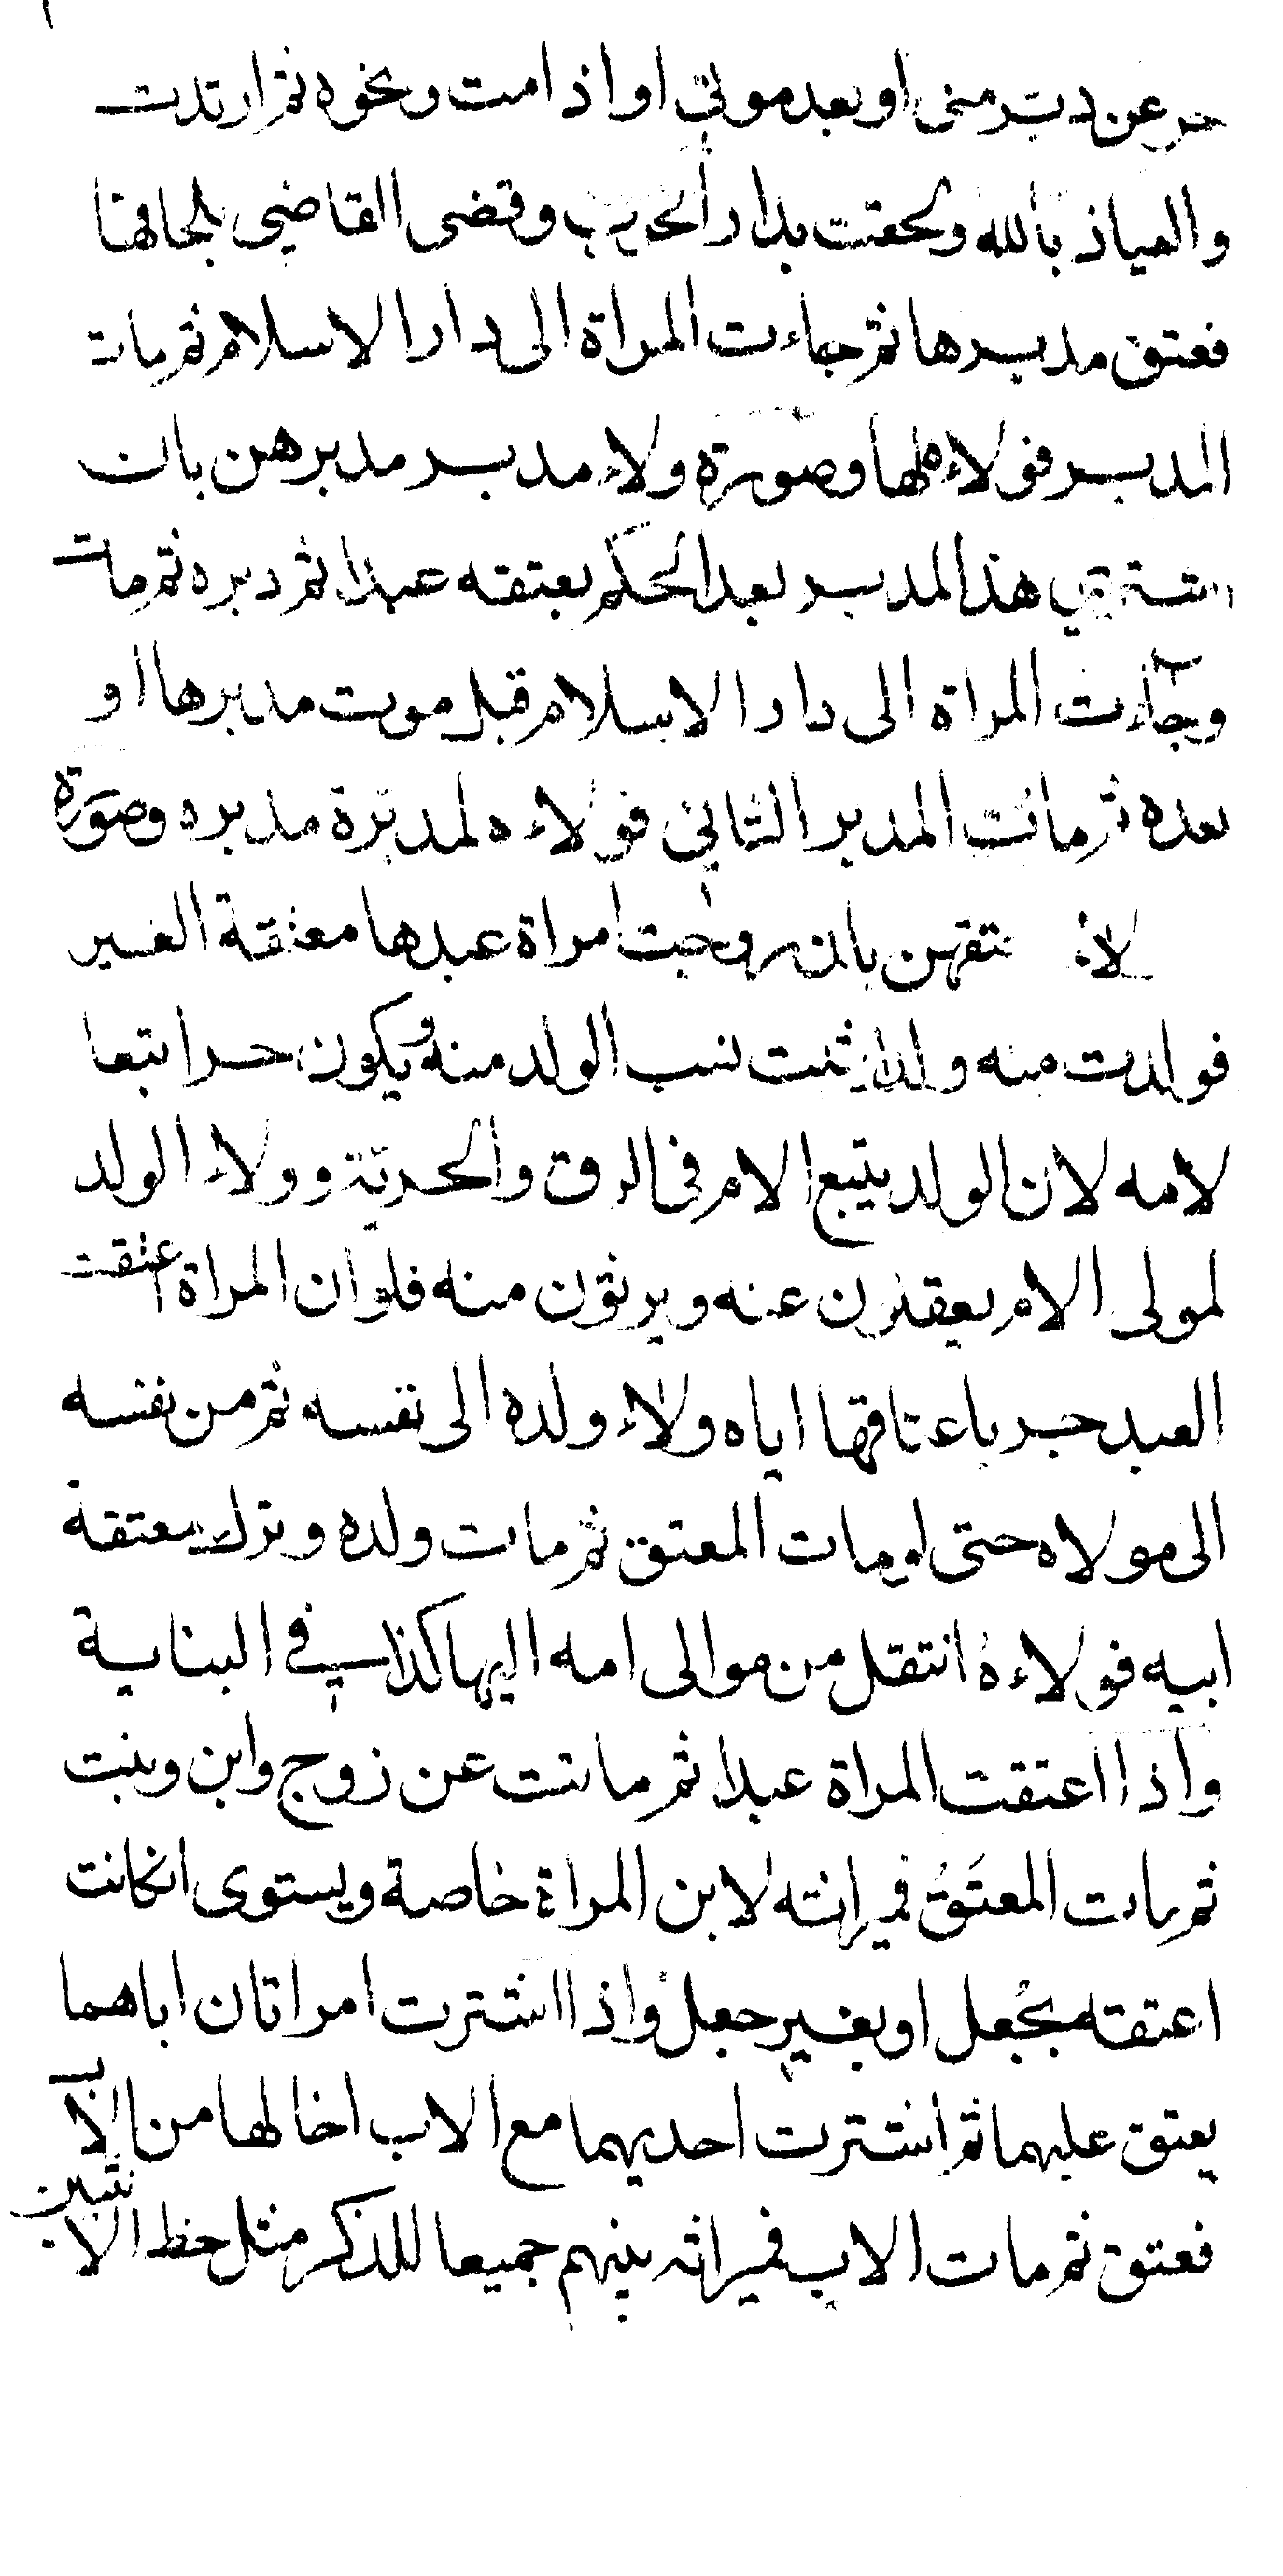 حر عن دبر منى او بعد موتي او اذا مت ونحوه ثم ارتدت
والعياذ بالله ولحقت بدار الحرب وقضى القاضي بلحاقها
فعتق مدبرها ثم جاءت المراة الى دار الاسلام ثم مات
المدبر فولاءه لها وصورة ولاء مدبر مدبرهن بان
اشترى هذا المدبر بعد الحكم بعتقه عبدا ثم دبره ثم مات
وجاءت المراة الى دار الاسلام قبل موت مدبرها او
بعده ثم مات المدبر الثاني فولاءه لمدبرة مدبره وصورة
لاء تقهن بان زوجت امراة عبدها معتقة الغير
فولدت منه ولدا يثبت نسب الولد منه ويكون حرا تبعا
لامه لان الولد يتبع الام فى الرق والحرية وولاء الولد
لمولى الام يعقلون عنه ويرثون منه فلو ان المراة اعتقت
العبد جر باعتاقها اياه ولاء ولده الى نفسه ثم من نفسه
الى مولاه حتى لو مات المعتق ثم مات ولده وترك معتقة
ابيه فولاءه انتقل من موالى امه اليها كذا في البناية
واذا اعتقت المراة عبدا ثم ماتت عن زوج وابن وبنت
ثم مات المعتَق فميراثه لابن المراة خاصة ويستوى انكانت
اعتقه بجُعل او بغير جعل واذا اشترت امراتان اباهما
يعتق عليهما ثم اشترت احديهما مع الاب اخا لها من الاب
فعتق ثم مات الاب فميراثه بينهم جميعا للذكر مثل حظ الانثيين